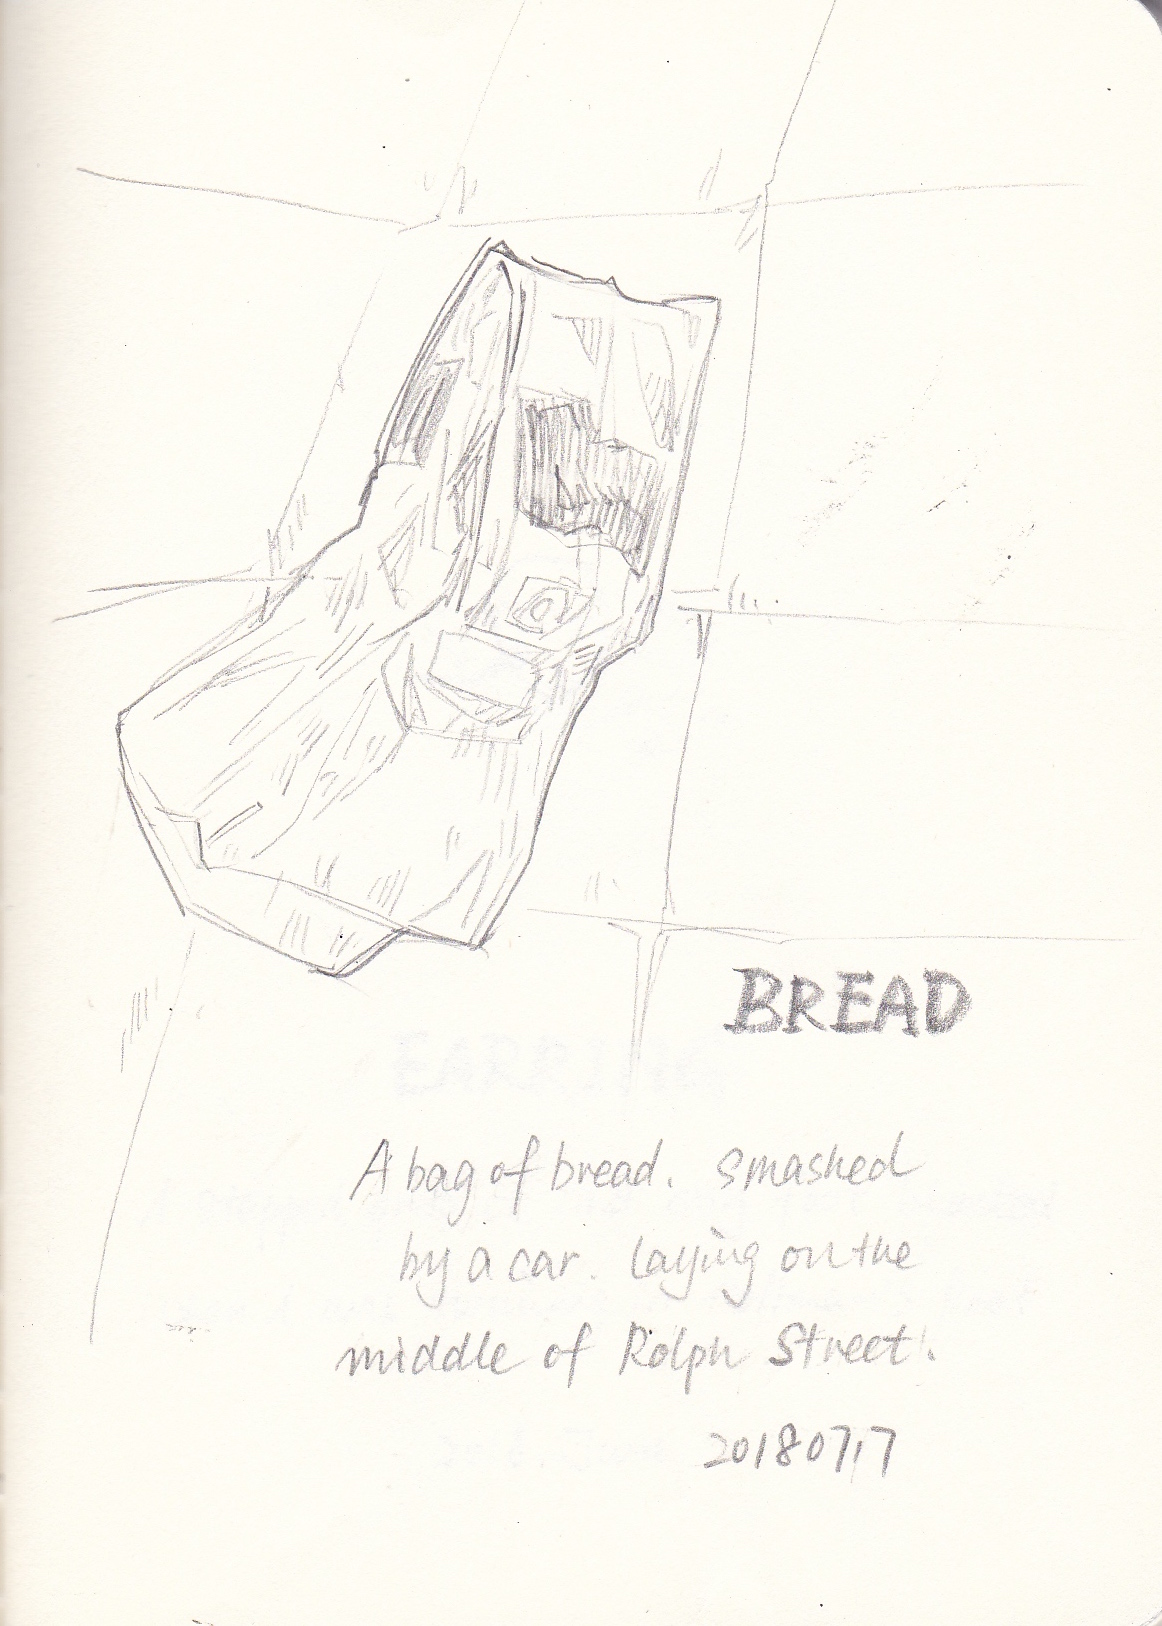 BREAD
A bag of bread. smashed
by a car. laying on the
middle of Rolph Street.
20180717